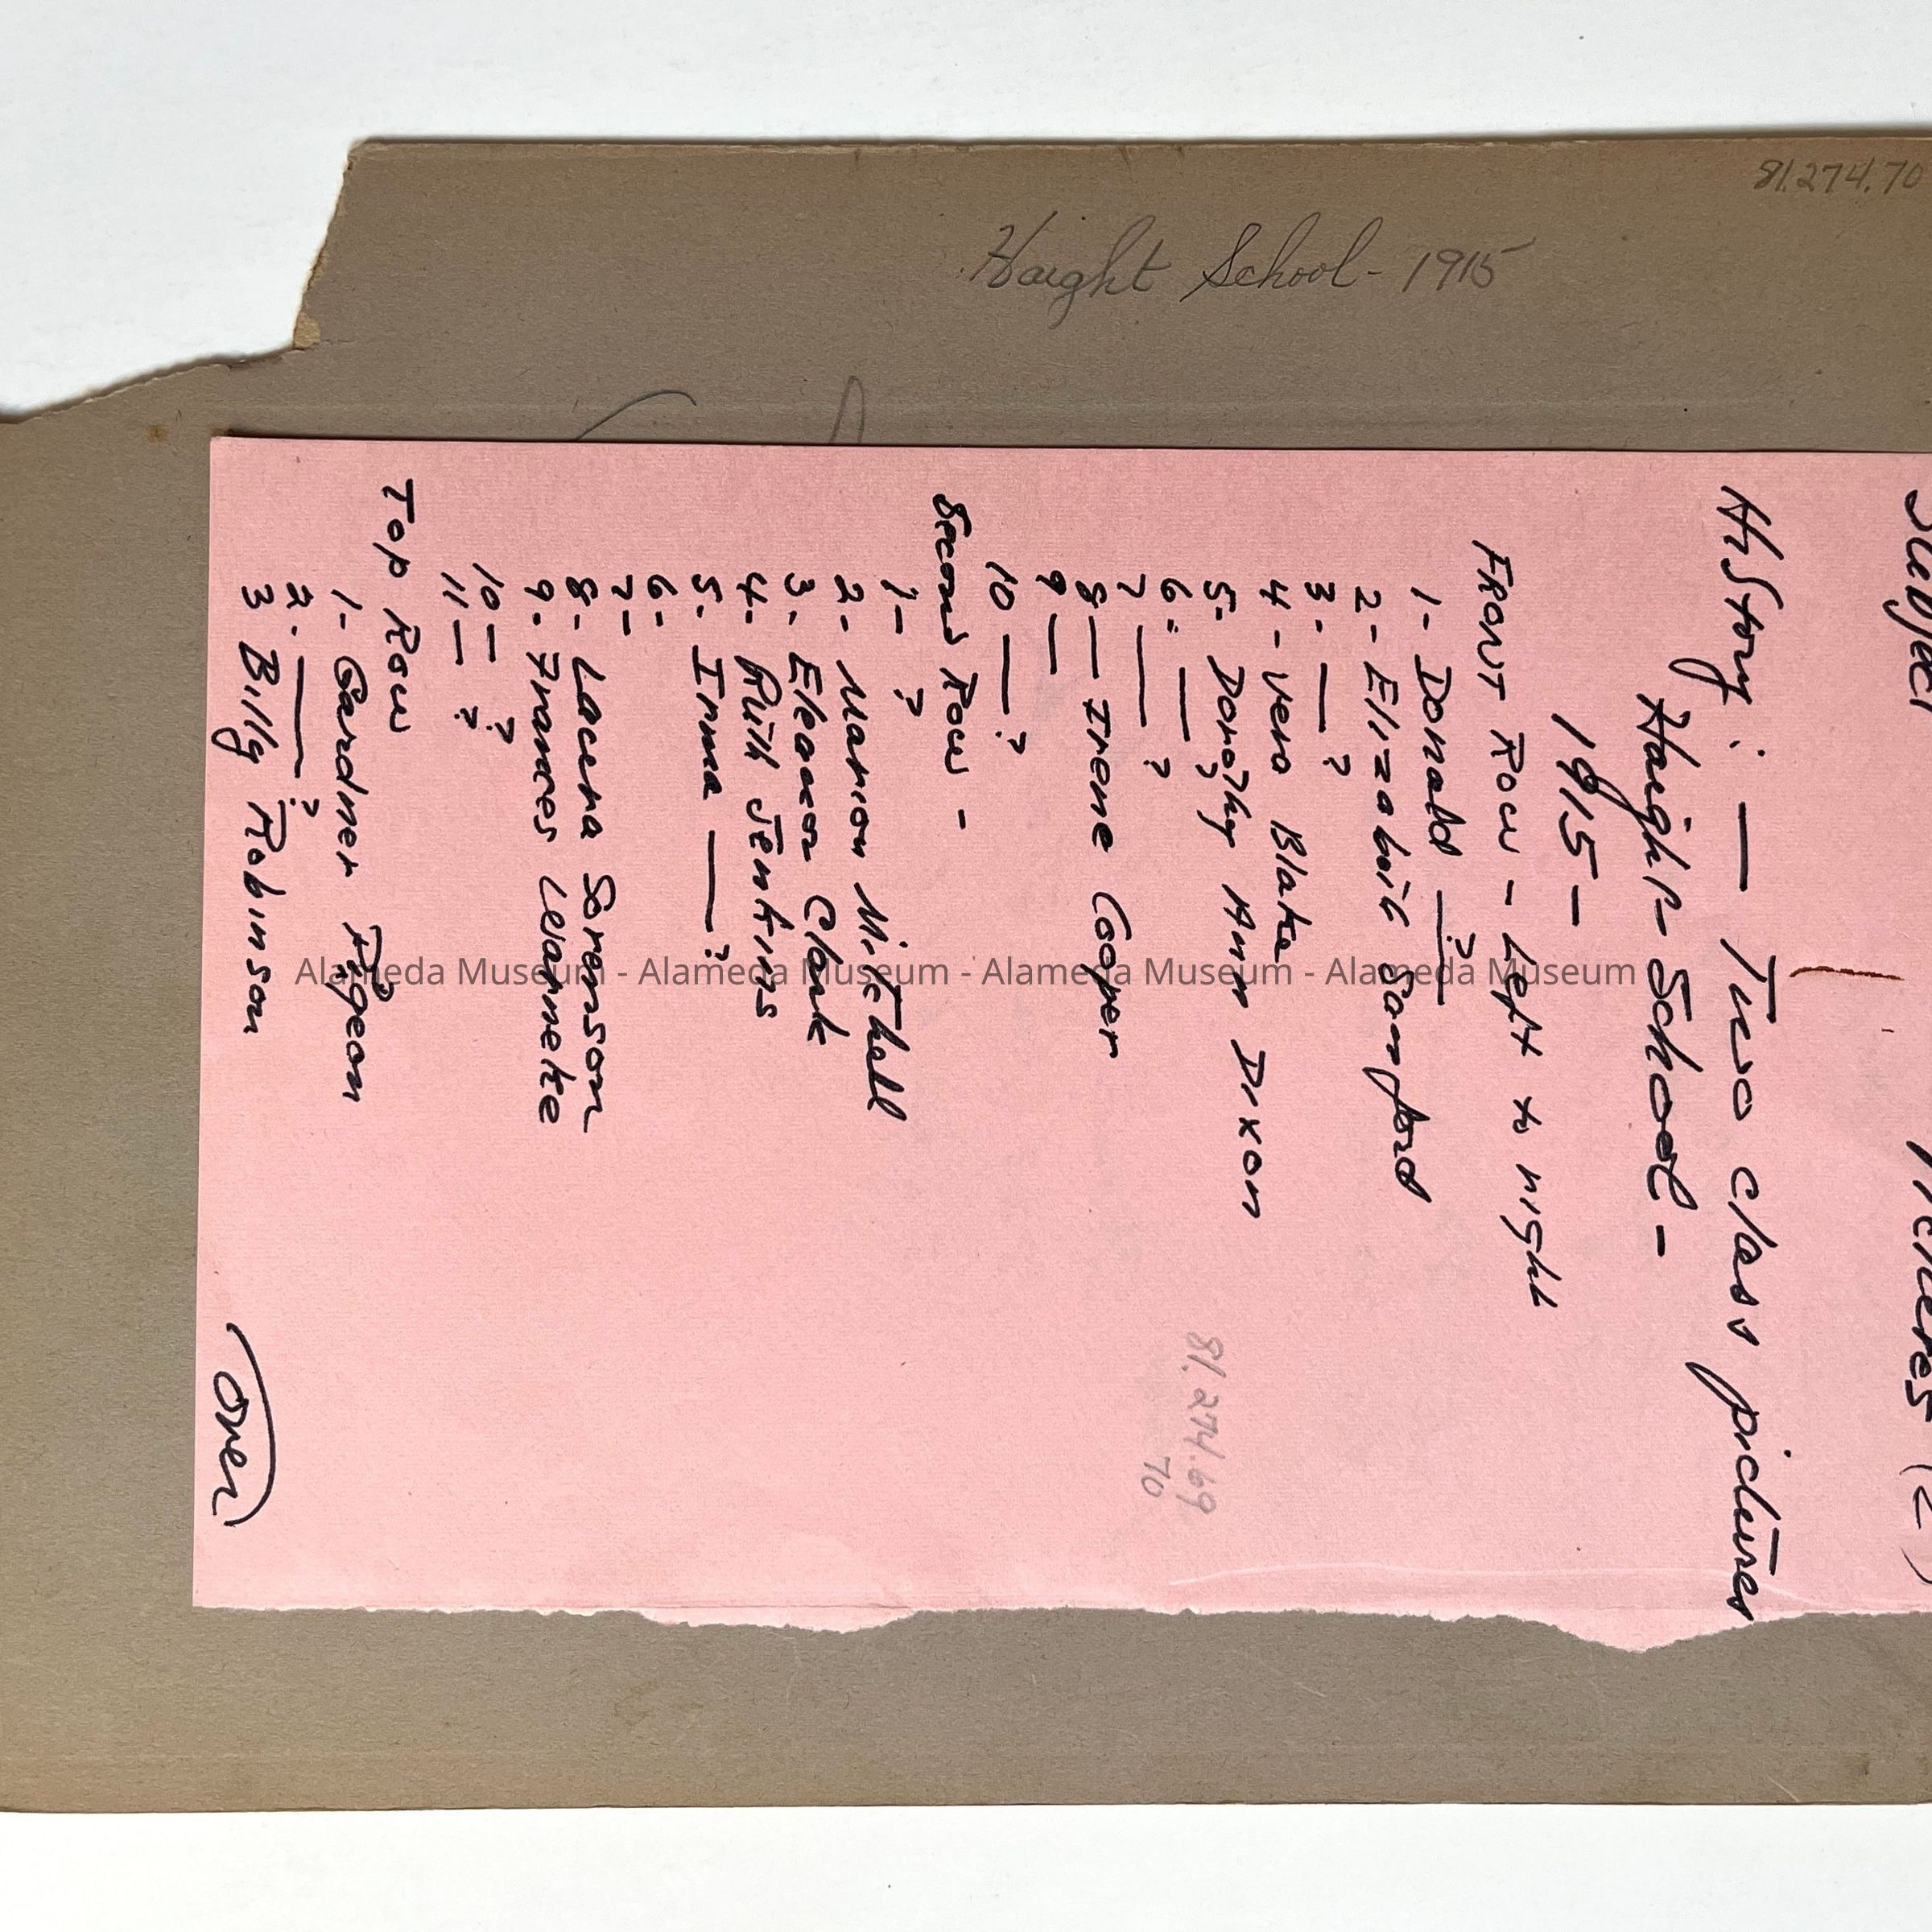 81.274.70
Haight School - 1915
Subject Pictures (2)
History : — Two class pictures
Haight School -
1915 -
FRONT ROW - Left to right
1 - Donald — ?
2 - Elizabeth Sanford
3 - — ?
4 - Vera Blake
5 - Dorothy Ann Dixon
6 - — ?
7 — ?
8 — Irene Cooper
9 —
10 — ?
Second Row -
1 - ?
2 - Marion Mitchell
3. Eleanor Clark
4. Ruth Jenkins
5. Irma — ?
6 -
7 -
8 - Laura Sorenson
9. Frances Warneke
10 — ?
11 — ?
Top Row
1 - Gardner Pigeon
2. — ?
3 Billy Robinson
over
81.274.69
70
Alameda Museum - Alameda Museum - Alameda Museum - Alameda Museum